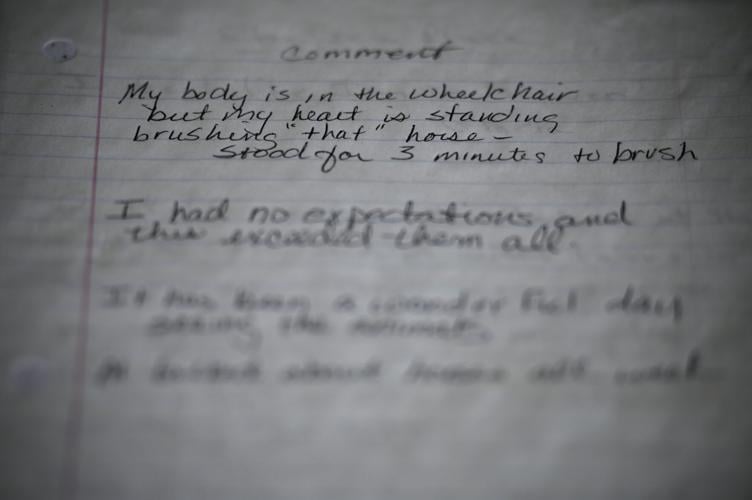 Comment
My body is in the wheelchair
but my heart is standing
brushing "that" horse -
stood for 3 minutes to brush
I had no expectations and
this exceeded them all.
It has been a wonderful day
seeing the
about horses all week